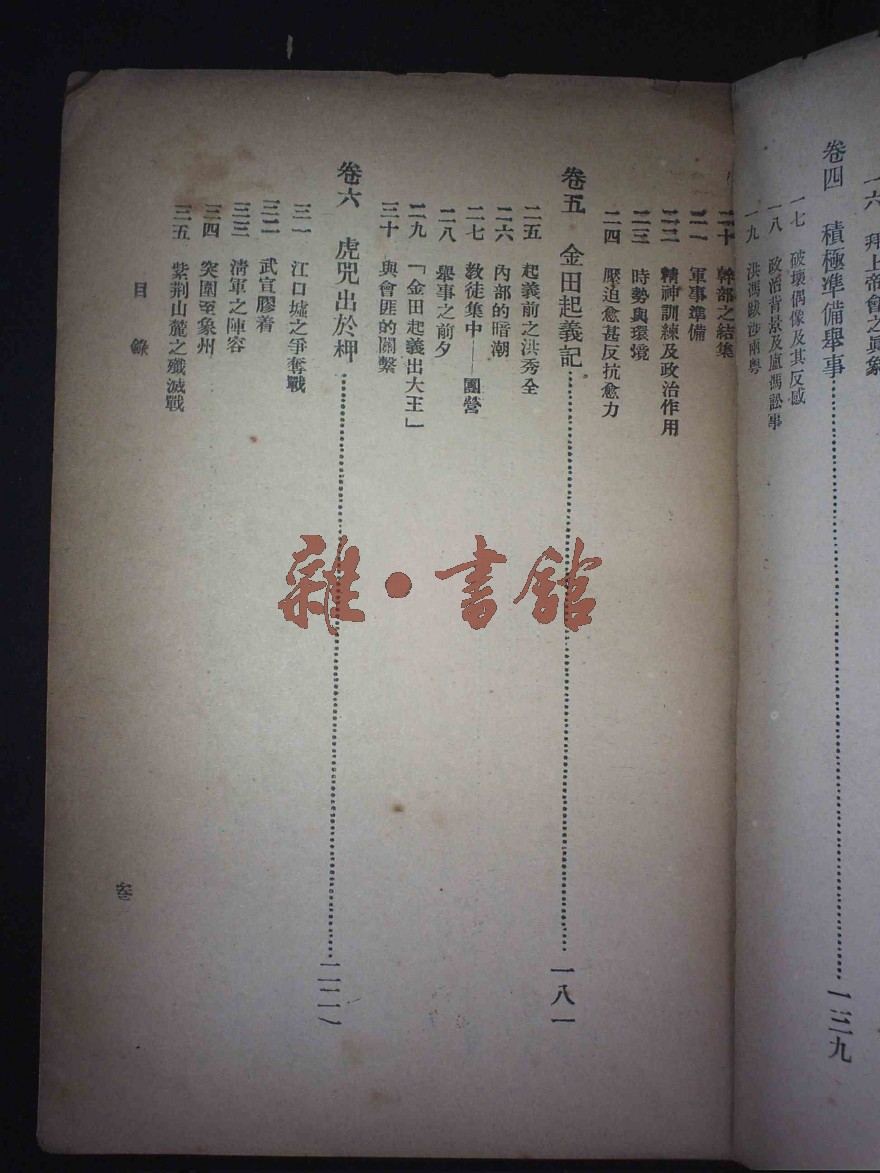 一六 拜上帝會之
卷四 積極準備舉事……一三九
一七 破壞偶像及其反感
一八 政治背景及盧馮訟事
一九 洪馮跋涉兩粵
二十 幹部之結集
二一 軍事準備
二二 精神訓練及政治作用
二三 時勢與環境
二四 壓迫愈甚反抗愈力
卷五 金田起義記……一八一
二五 起義前之洪秀全
二六 內部的暗潮
二七 教徒集中——團營
二八 舉事之前夕
二九 「金田起義出大王」
三十 與會匪的關繫
卷六 虎兕出於柙……二二一
三一 江口墟之爭奪戰
三二 武宣膠着
三三 清軍之陣容
三四 突圍至象州
三五 紫荆山麓之殲滅戰
目錄
叁
雜·書館